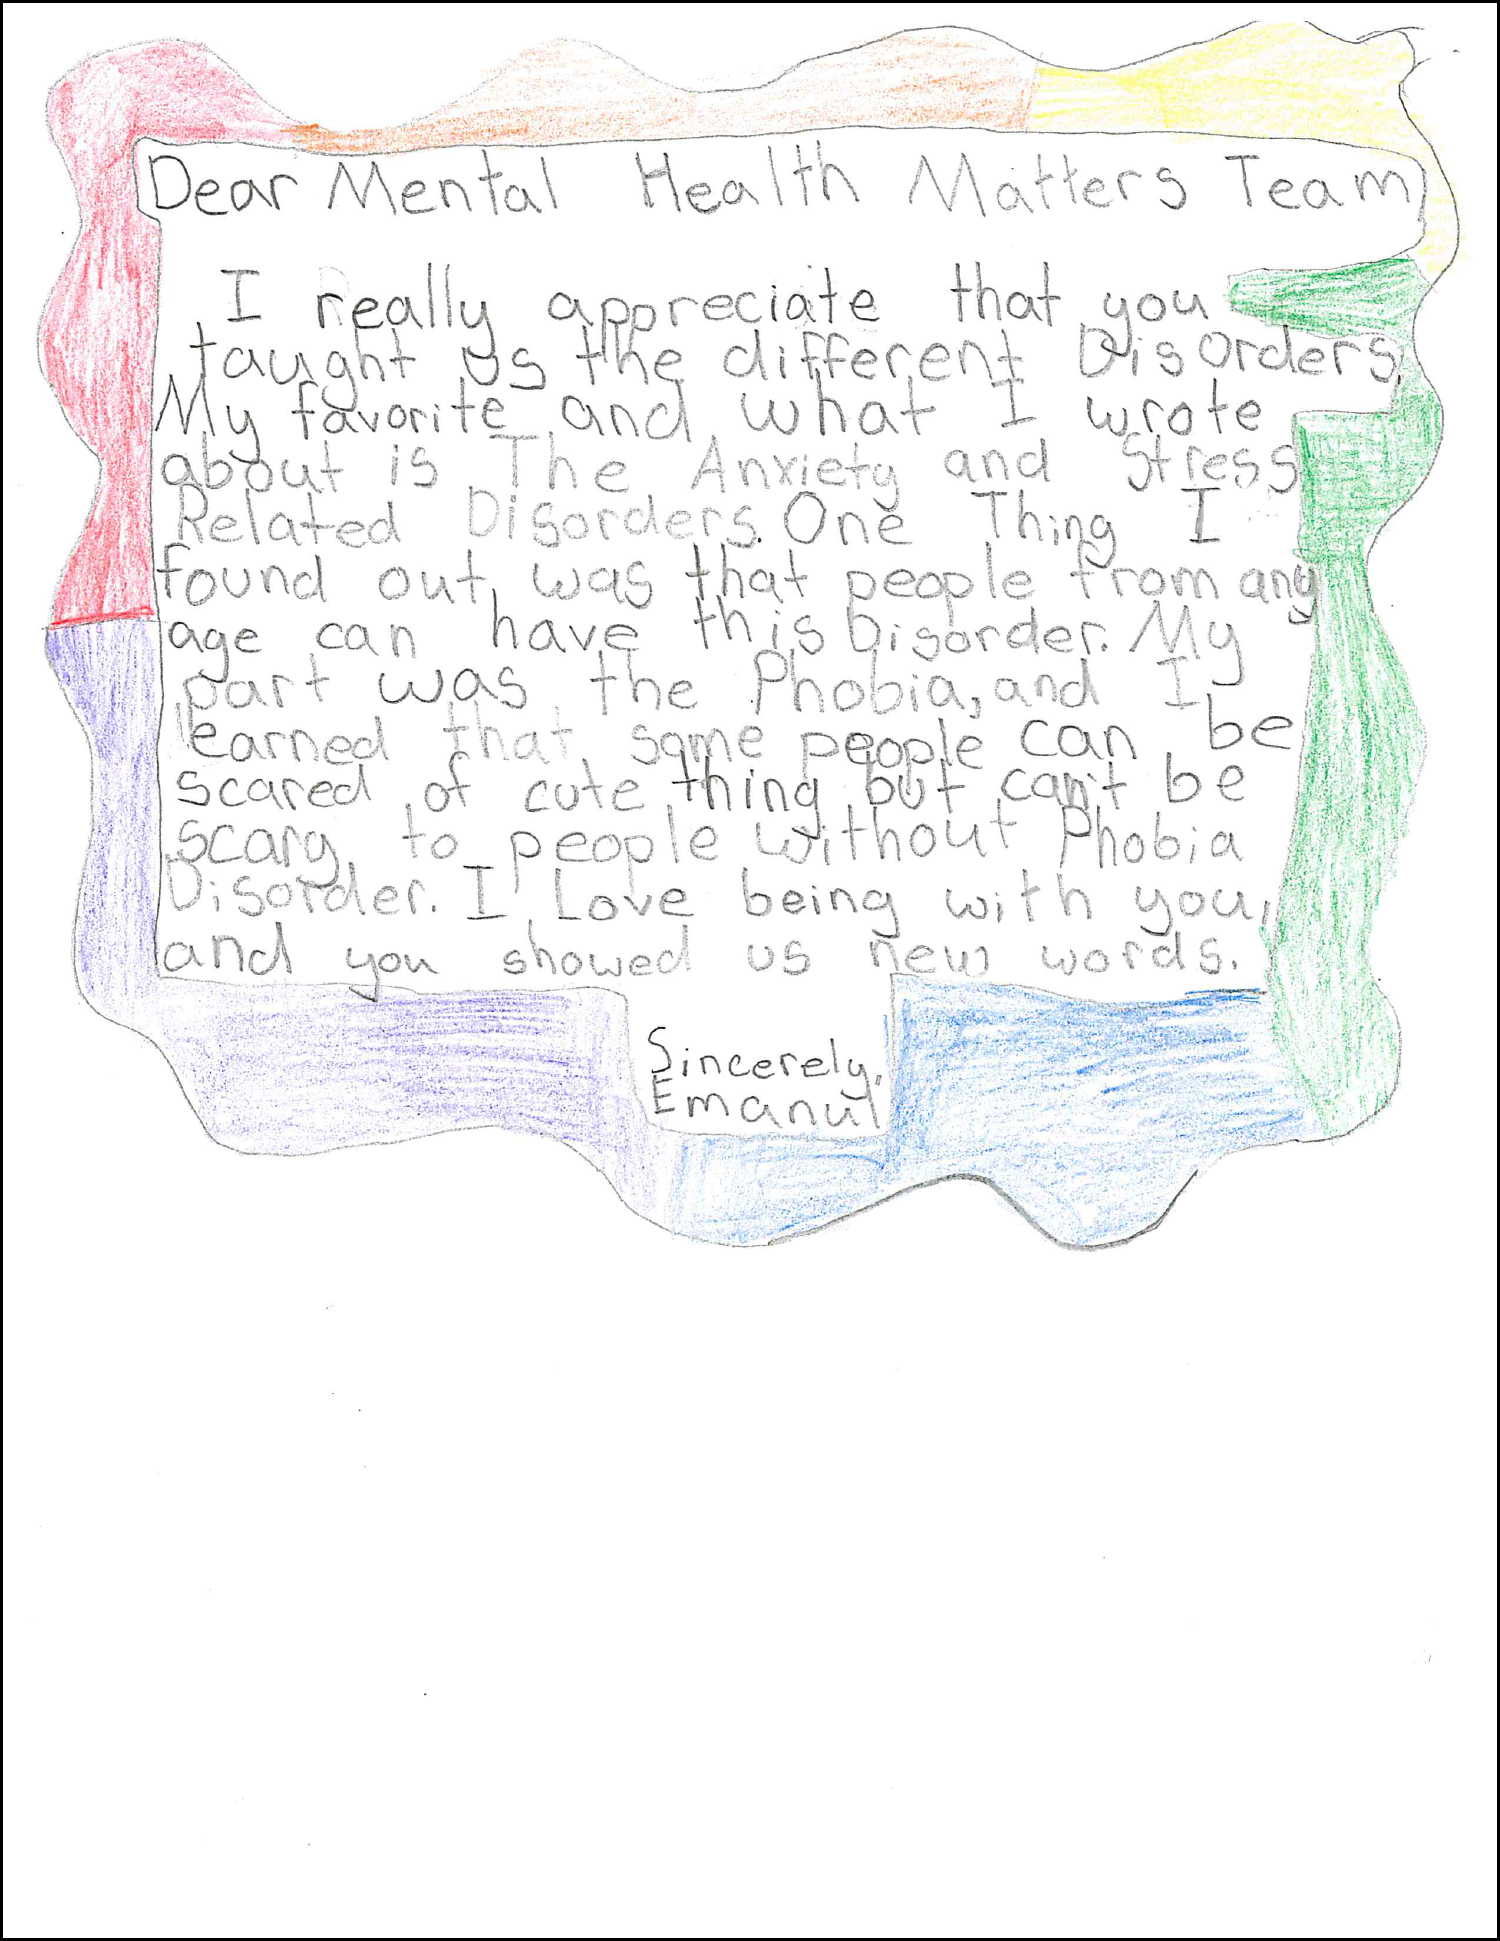 Dear Mental Health Matters Team,
I really appreciate that you
taught us the different Disorders,
My favorite and what I wrote
about is The Anxiety and Stress
Related Disorders. One Thing I
found out was that people from any
age can have this Disorder. My
part was the Phobia, and I
learned that some people can be
scared of cute thing but can't be
scary to people without Phobia
Disorder. I Love being with you,
and you showed us new words.
Sincerely,
Emanul